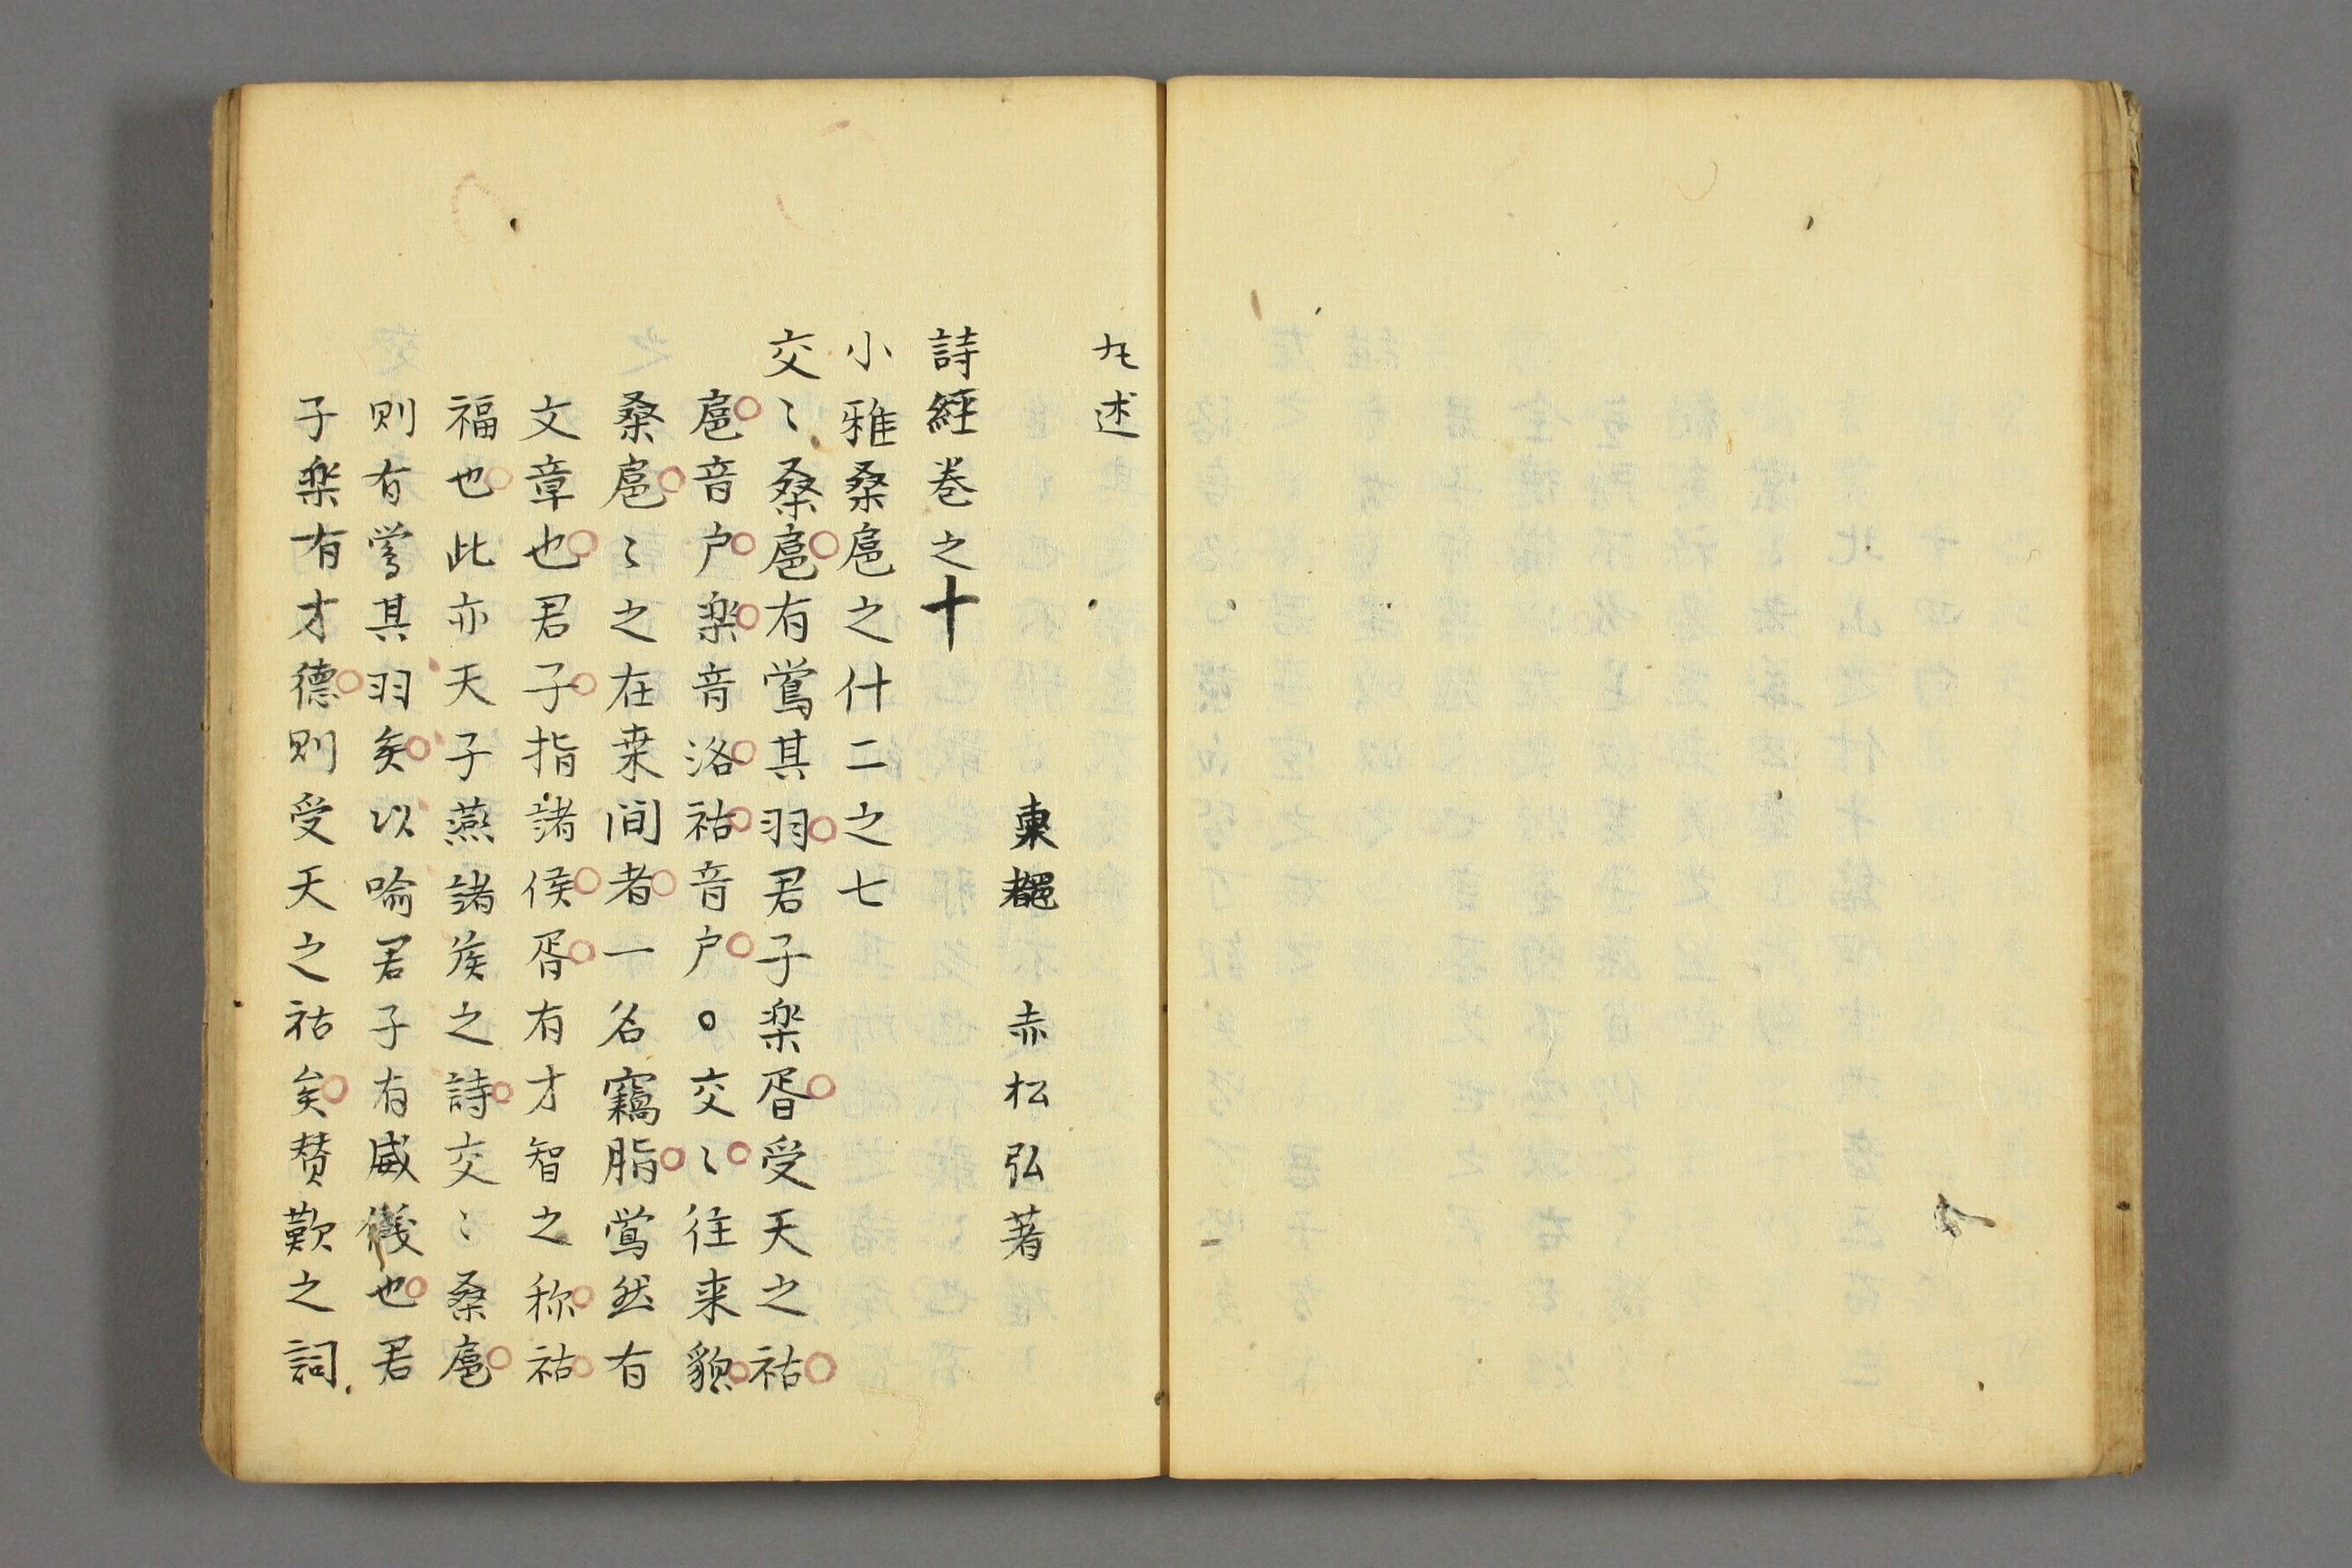 九述
東都 赤松弘著
詩經卷之十
小雅桑扈之什二之七
交〻桑扈有鶯其羽君子楽胥受天之祜
扈音户楽音洛祜音户。交〻往来貌
桑扈〻之在桒间者一名竊脂鶯然有
文章也君子指諸侯胥有才智之称祜
福也此亦天子燕諸侯之詩交〻桑扈
则有鶯其羽矣以喻君子有威儀也君
子楽有才德则受天之祜矣賛歎之詞